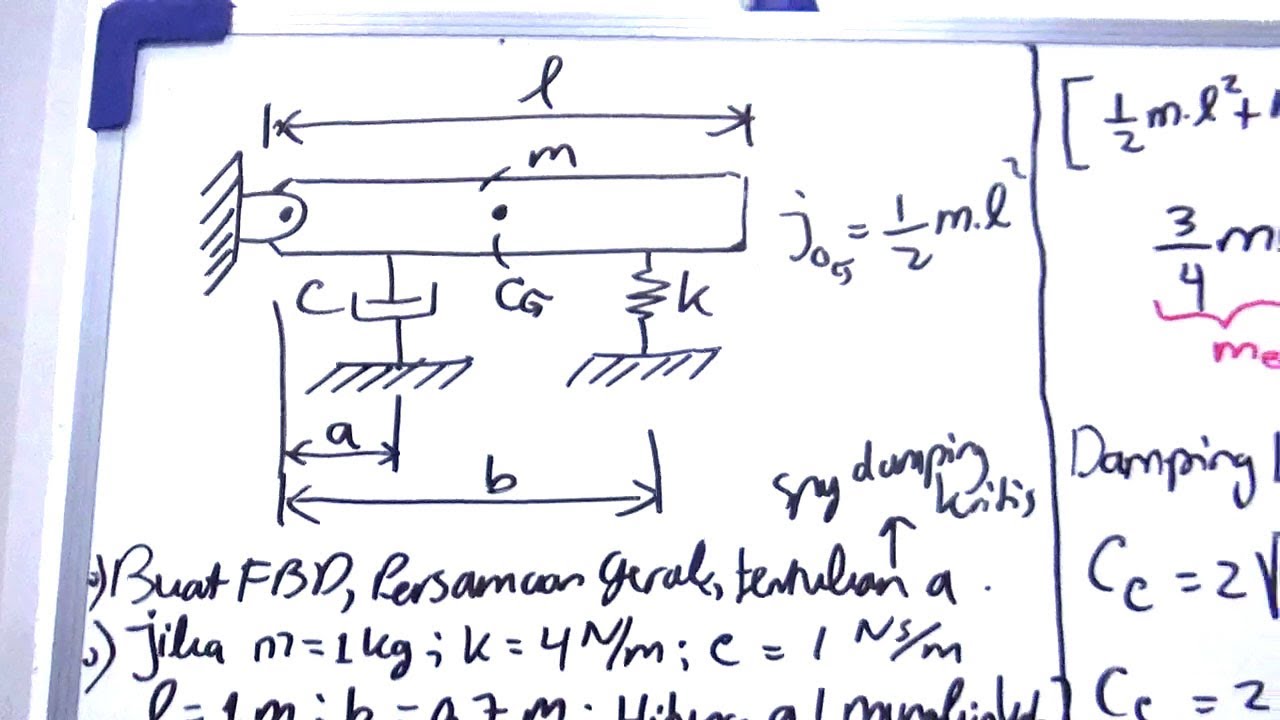 l
m
j_{oG} = 1/2 m.l²
C
CG
k
a
b
spy damping
kritis
↑
•) Buat FBD, Persamaan gerak, tentukan a.
•) jika m = 1 kg ; k = 4 N/m ; c = 1 Ns/m
l = 1 m ; b = 0,7 m.
[ 1/2 m.l² +
3/4 m
me
Damping
Cc = 2√
Cc = 2